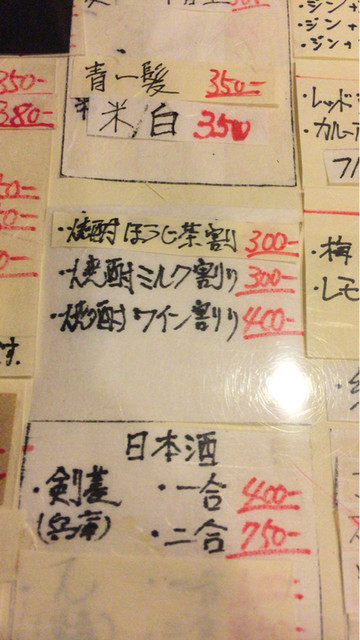 青一髪 350-
米/白 350
・焼酎ほうじ茶割 300-
・焼酎ミルク割り 300-
・焼酎ワイン割り 400-
日本酒
・剣菱 ・一合 400-
(兵庫) ・二合 750-
350-
380-
・ジン+
・ジン+
・ジン+
・レッド
・カルー
・梅
・レモ
す。